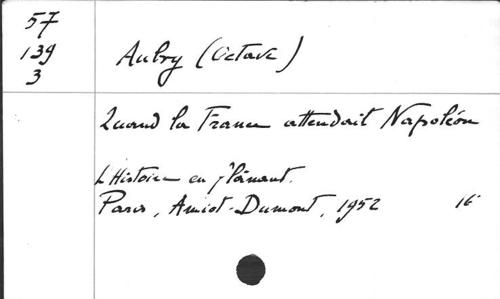 57
139
3
Aubry (Octave)
Quand la France attendait Napoléon
L'Histoire en flânant.
Paris, Amiot-Dumont, 1952 16°